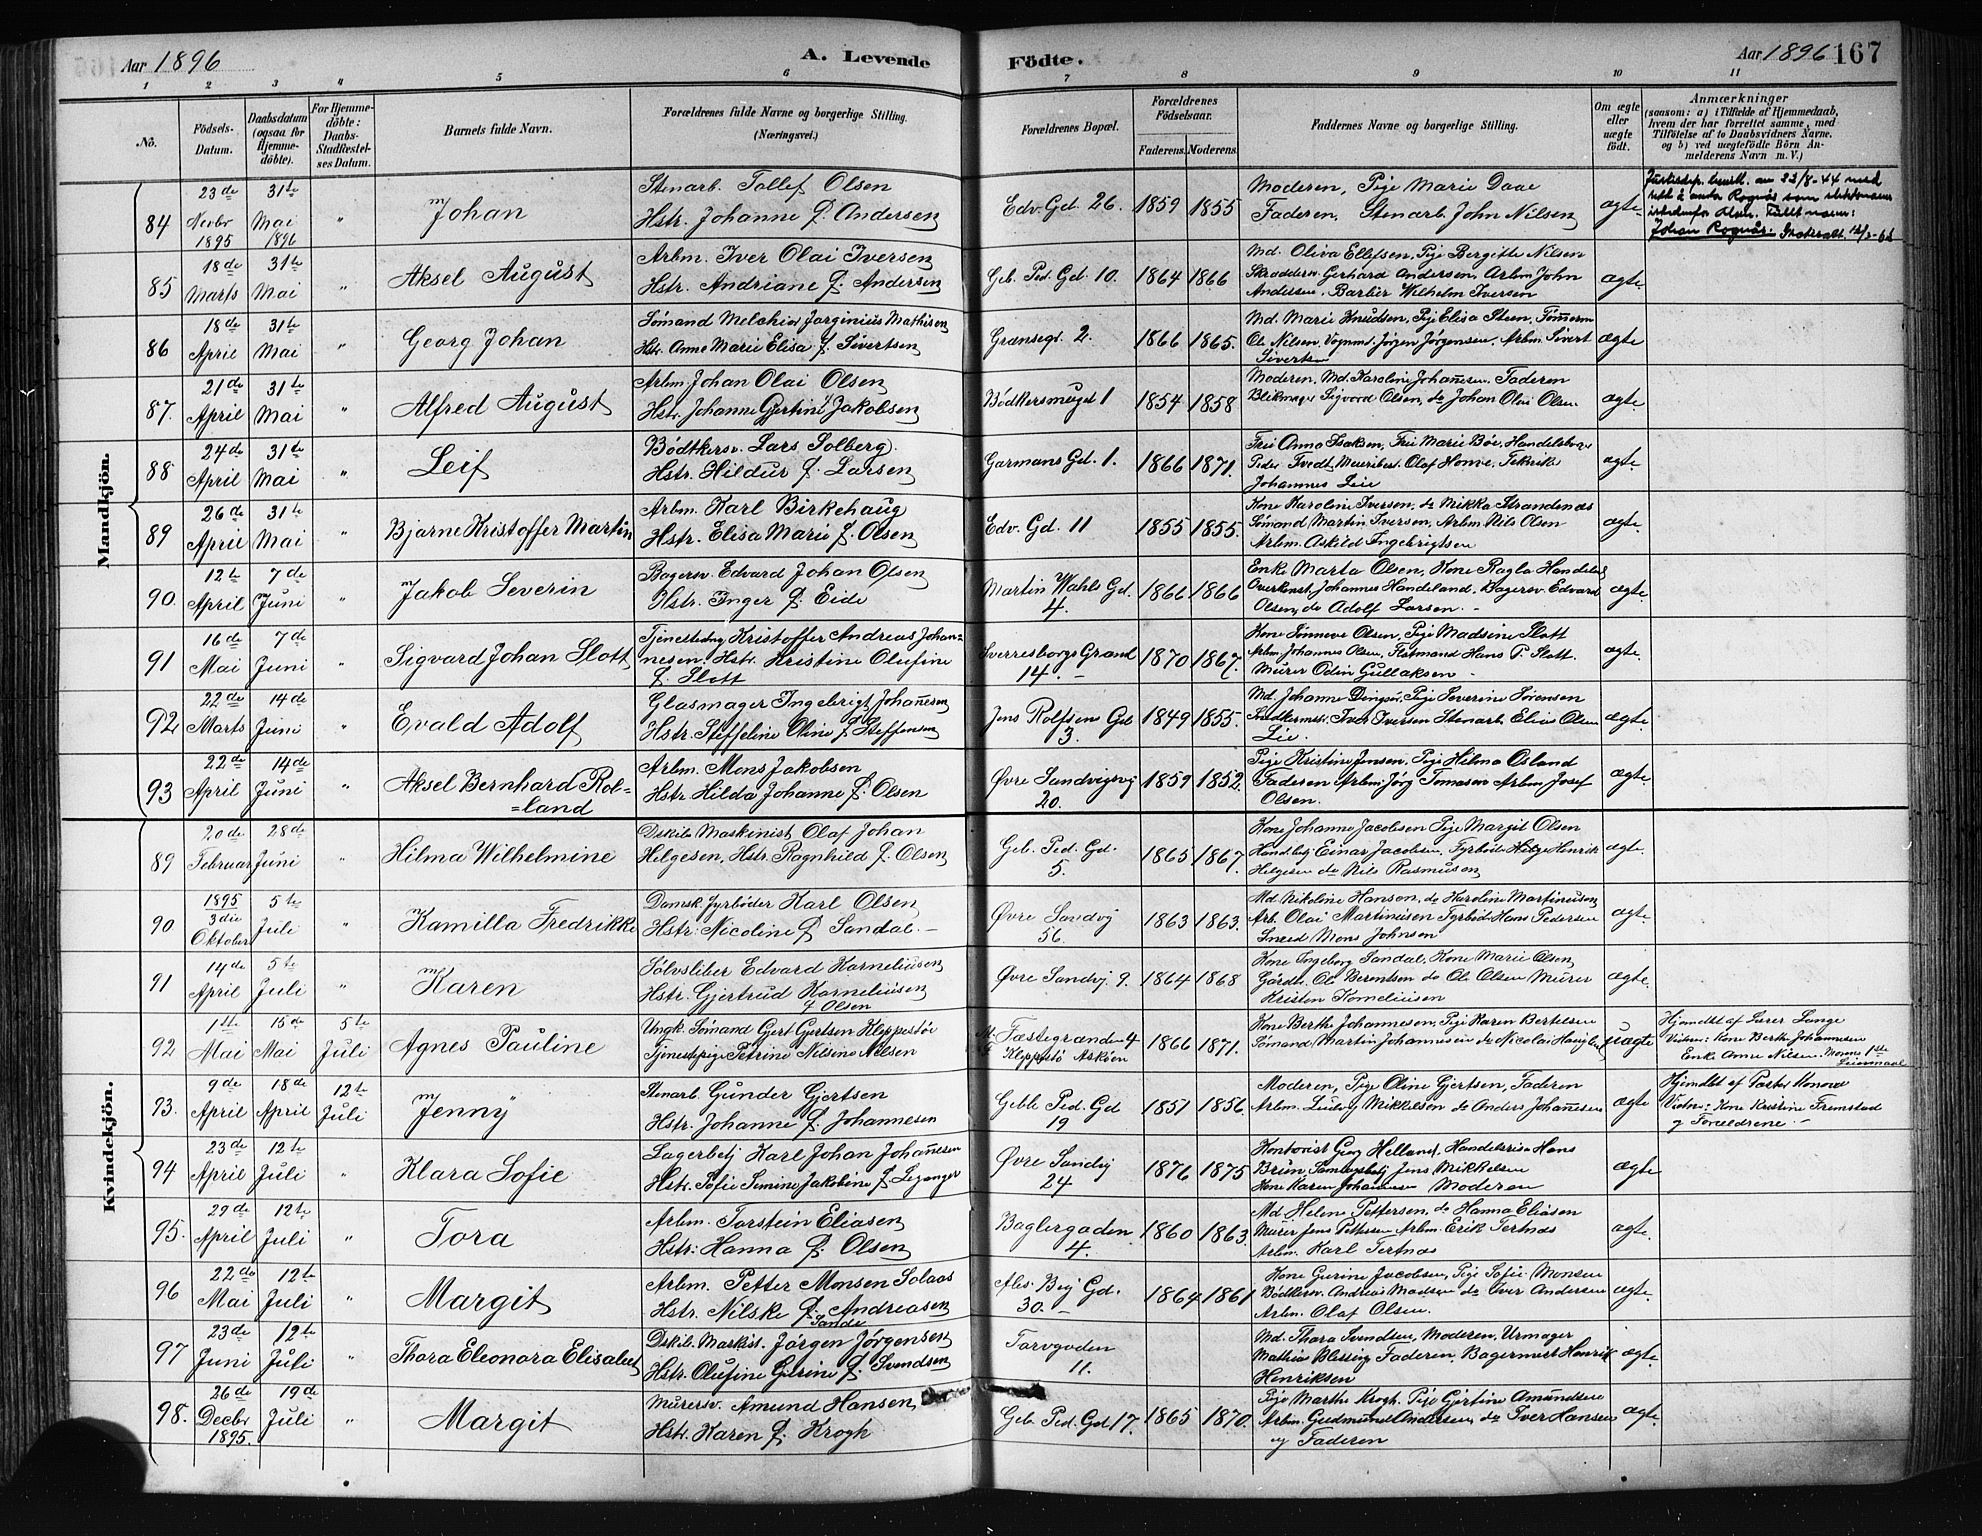 Aar 1896
A. Levende
Födte.
Aar 1896
167
1 2 3 4 5 6 7 8 9 10 11
No.
Födsels-Datum.
Daabsdatum (ogsaa for Hjemme-döbte).
For Hjemme-döbte: Daabs-Stadfæstel-ses Datum.
Barnets fulde Navn.
Forældrenes fulde Navne og borgerlige Stilling. (Næringsvei.)
Forældrenes Bopæl.
Forældrenes Födselsaar.
Faderens. Moderens.
Faddernes Navne og borgerlige Stilling.
Om ægte eller uægte födt.
Anmærkninger
(saasom: a) i Tilfælde af Hjemmedaab,
hvem der har forrettet samme, med
Tilföielse af to Daabsvidners Navne,
og b) ved uægtefödte Börn An-
melderens Navn m. V.)
Mandkjön.
84 23de Novbr 1895 31te Mai 1896 " Johan
Stenarb. Tollef Olsen
Hstr. Johanne f. Andersen
Edv. Gd. 26. 1859 1855
Moderen, Pige Marie Daae
Faderen, Stenarb. John Nilsen
ægte
Justisdep. bevill. av 22/8-44 med
rett å andre Rognås som slektsnavn
istedenfor Olsen. Fullt navn:
Johan Rognås.
85 18de Marts 31te Mai " Aksel August
Arbm. Iver Olai Iversen
Hstr. Andriane f. Andersen
Geb. Ped. Gd. 10. 1864 1866
Md. Oliva Ellefsen, Pige Bergitte Nilsen
Skrædderm. Gerhard Andersen, Arbm John
Andersen, Barber Wilhelm Iversen
ægte
86 18de April 31te Mai " Georg Johan
Sömand Melchior Jørginius Mathisen
Hstr. Anne Marie Elisa f. Sivertsen
Grænsegr. 2. 1866 1865.
Md. Marie Knudsen, Pige Elisa Steen, Tömerm
Ole Nilsen, Vognmd. Jørgen Jørgensen, Arbm. Sivert
Sivertsen
ægte
87. 21de April 31te Mai " Alfred August
Arbm. Johan Olai Olsen
Hstr. Johanne Gjertine f. Jakobsen
Bødkersmuget 1 1854 1858
Moderen, Md. Karoline Johanesen, Faderen
Blikmager Sigvard Olsen, do Johan Olai Olsen
ægte
88 24de April 31te Mai " Leif
Bödtkersv. Lars Solberg
Hstr. Hildur f. Larsen
Garmans Gd. 1. 1866 1871.
Frü Anna Isaksen, Frü Marie Bøe, Handelsbog
Peder Tvedt, Meieribest. Olaf Homve, Tekniker
Johannes Lie
ægte
89 26de April 31te Mai " Bjarne Kristoffer Martin
Arbm. Karl Birkehaug
Hstr. Elisa Marie f. Olsen
Edv. Gd. 11 1855 1855.
Kone Karoline Iversen, do Mikka Strandenæs
Sömand Martin Iversen, Arbm Nils Olsen
Arbm. Askild Ingebrigtsen
ægte
90. 12te April 7de Juni " Jakob Severin
Bagersv. Edvard Johan Olsen
Hstr. Inger f. Eide
Martin Wahls Gd. 4. 1866 1866
Enke Marta Olsen, Kone Ragla Handeland
Overkonst. Johannes Handeland, Bagersv. Edvard
Olsen, do Adolf Larsen.
ægte
91 16de Mai 7de Juni " Sigvard Johan Slott
Tjenestedng Kristoffer Andreas Johan-
nesen. Hstr. Kristine Olufine
f. Slott
Sverresborgs Grand 14. 1870 1867.
Kone Sönneve Olsen, Pige Madsine Slott
Arbm. Johannes Olsen, Flötmand Hans P. Slott
Murer Odin Gullaksen
ægte
92 22de Marts 14de Juni " Evald Adolf
Glasmager Ingebrigt Johanesen
Hstr. Steffeline Oline f. Steffensen
Jens Rolfsens Gd 3. 1849 1855.
Md. Johanne Dinger, Pige Severine Sørensen
Snedkermstr. Iver Iversen Stenarb. Elias Olsen
Lie.
ægte
93 22de April 14de Juni " Aksel Bernhard Rol-
=land
Arbm. Mons Jakobsen
Hstr. Hilda Johanne f. Olsen
Øvre Sandvigsvg 20. 1859 1852.
Pige Kristine Jensen, Pige Hilma Osland
Faderen Arbm Jörg Tomasen Arbm Josef
Olsen.
ægte
Kvindekjön.
89 20de Februar 28de Juni " Hilma Wilhelmine
Dskibs Maskinist Olaf Johan
Helgesen, Hstr. Ragnhild f. Olsen
Geb. Ped. Gd. 5. 1865 1867.
Kone Johanne Jacobsen Pige Margit Olsen
Handlsbetj Einar Jacobsen, Fyrböder Helge Henrik
Helgesen do Nils Rasmusen
ægte
90 1895 3die Oktober 5te Juli " Kamilla Fredrikke
Damsk. fyrböder Karl Olsen
Hstr. Nicoline f. Sandal.
Øvre Sandvg 56. 1863 1863.
Md. Nikoline Hansen, do Karoline Martinusen
Arb. Olai Martinüsen Fyrböd Hans Pedersen
Smed Mons Johnsen
ægte
91 14de April 5te Juli " Karen
Sölvsliber Edvard Korneliusen
Hstr. Gjertrud Korneliusen
f Olsen
Øvre Sandvg 9. 1864 1868
Kone Ingeborg Sandal, Kone Marie Olsen
Gårdb. Ole Berentsen do Ole Olsen Murer
Kristen Korneliusen
ægte
92 1ste Mai 15de Mai 5te Juli Agnes Pauline
Ungk. Sömand Gjert Gjertsen Kleppestø
Tjenestepige Petrine Nilsine Nilsen
Fæstegranden 4
Kleppestö Askøen 1866 1871.
Kone Berthe Johannesen, Pige Karen Bertelsen
Sömand Martin Johannesen do Nicolai Haugland
uægte
Hjemdöbt af Lærer Lange
Vidner: Kone Berthe Johannesen
Enke Anne Nilsen. Moders 1ste
Leiermaal
93. 9de April 18de April 12te Juli Jenny
Stenarb. Gunder Gjertsen
Hstr. Johanne f. Johannesen
Geble Ped. Gd 19 1851 1856.
Moderen, Pige Oline Gjertsen, Faderen
Arbm. Ludvig Mikkelsen do Anders Johanesen
ægte
Hjemdbt af Pastor Konow
Vidner: Kone Kristine Fremstad
og Forældrene
94 23de April 12te Juli " Klara Sofie
Lagerbetj Karl Johan Johanesen
Hstr. Sofie Semine Jakobine f. Leganger
Øvre Sandvg 24 1876 1875
Kontorist Georg Helland, Handelsreis Hans
Brün, Jens Mikkelsen
Kone Karen Johannesen Moderen
ægte
95. 29de April 12te Juli " Tora
Arbm. Torstein Eliasen
Hstr. Hanna f. Olsen
Baglergaden 4. 1860 1863.
Md. Helene Pettersen, do Hanna Eliasen
Murer Jens Pettersen Arbm. Erik Tertnæs
Arbm. Karl Tertnæs
ægte.
96 22de Mai 12te Juli " Margit
Arbm. Petter Monsen Solaas
Hstr. Nilske f. Andreasen
Sande
30. 1864 1861
Kone Gurine Jacobsen, Pige Sofie Monsen
Bödkersv. Andreas Madsen do Iver Andersen
Arbm. Olaf Olsen.
ægte.
97 23de Juni 12te Juli " Thora Eleonora Elisabet
Dskibs. Maskist. Jörgen Jörgensen
Hstr. Olufine f. Svendsen
Torvgaden 11.
Md. Thora Svendsen, Moderen, Urmager
Mathias Blessing Faderen, Bagermest Henrik
Henriksen
ægte.
98. 26de Decbr 1895. 19de Juli " Margit
Murersv. Amund Hansen
Hstr. Karen f. Krogh
Geb. Ped. Gd 17. 1865 1870.
Pige Marthe Krogh, Pige Gjertine Amundsen
Arbm. Gudmund Andersen, do Iver Hansen
og Faderen
ægte.